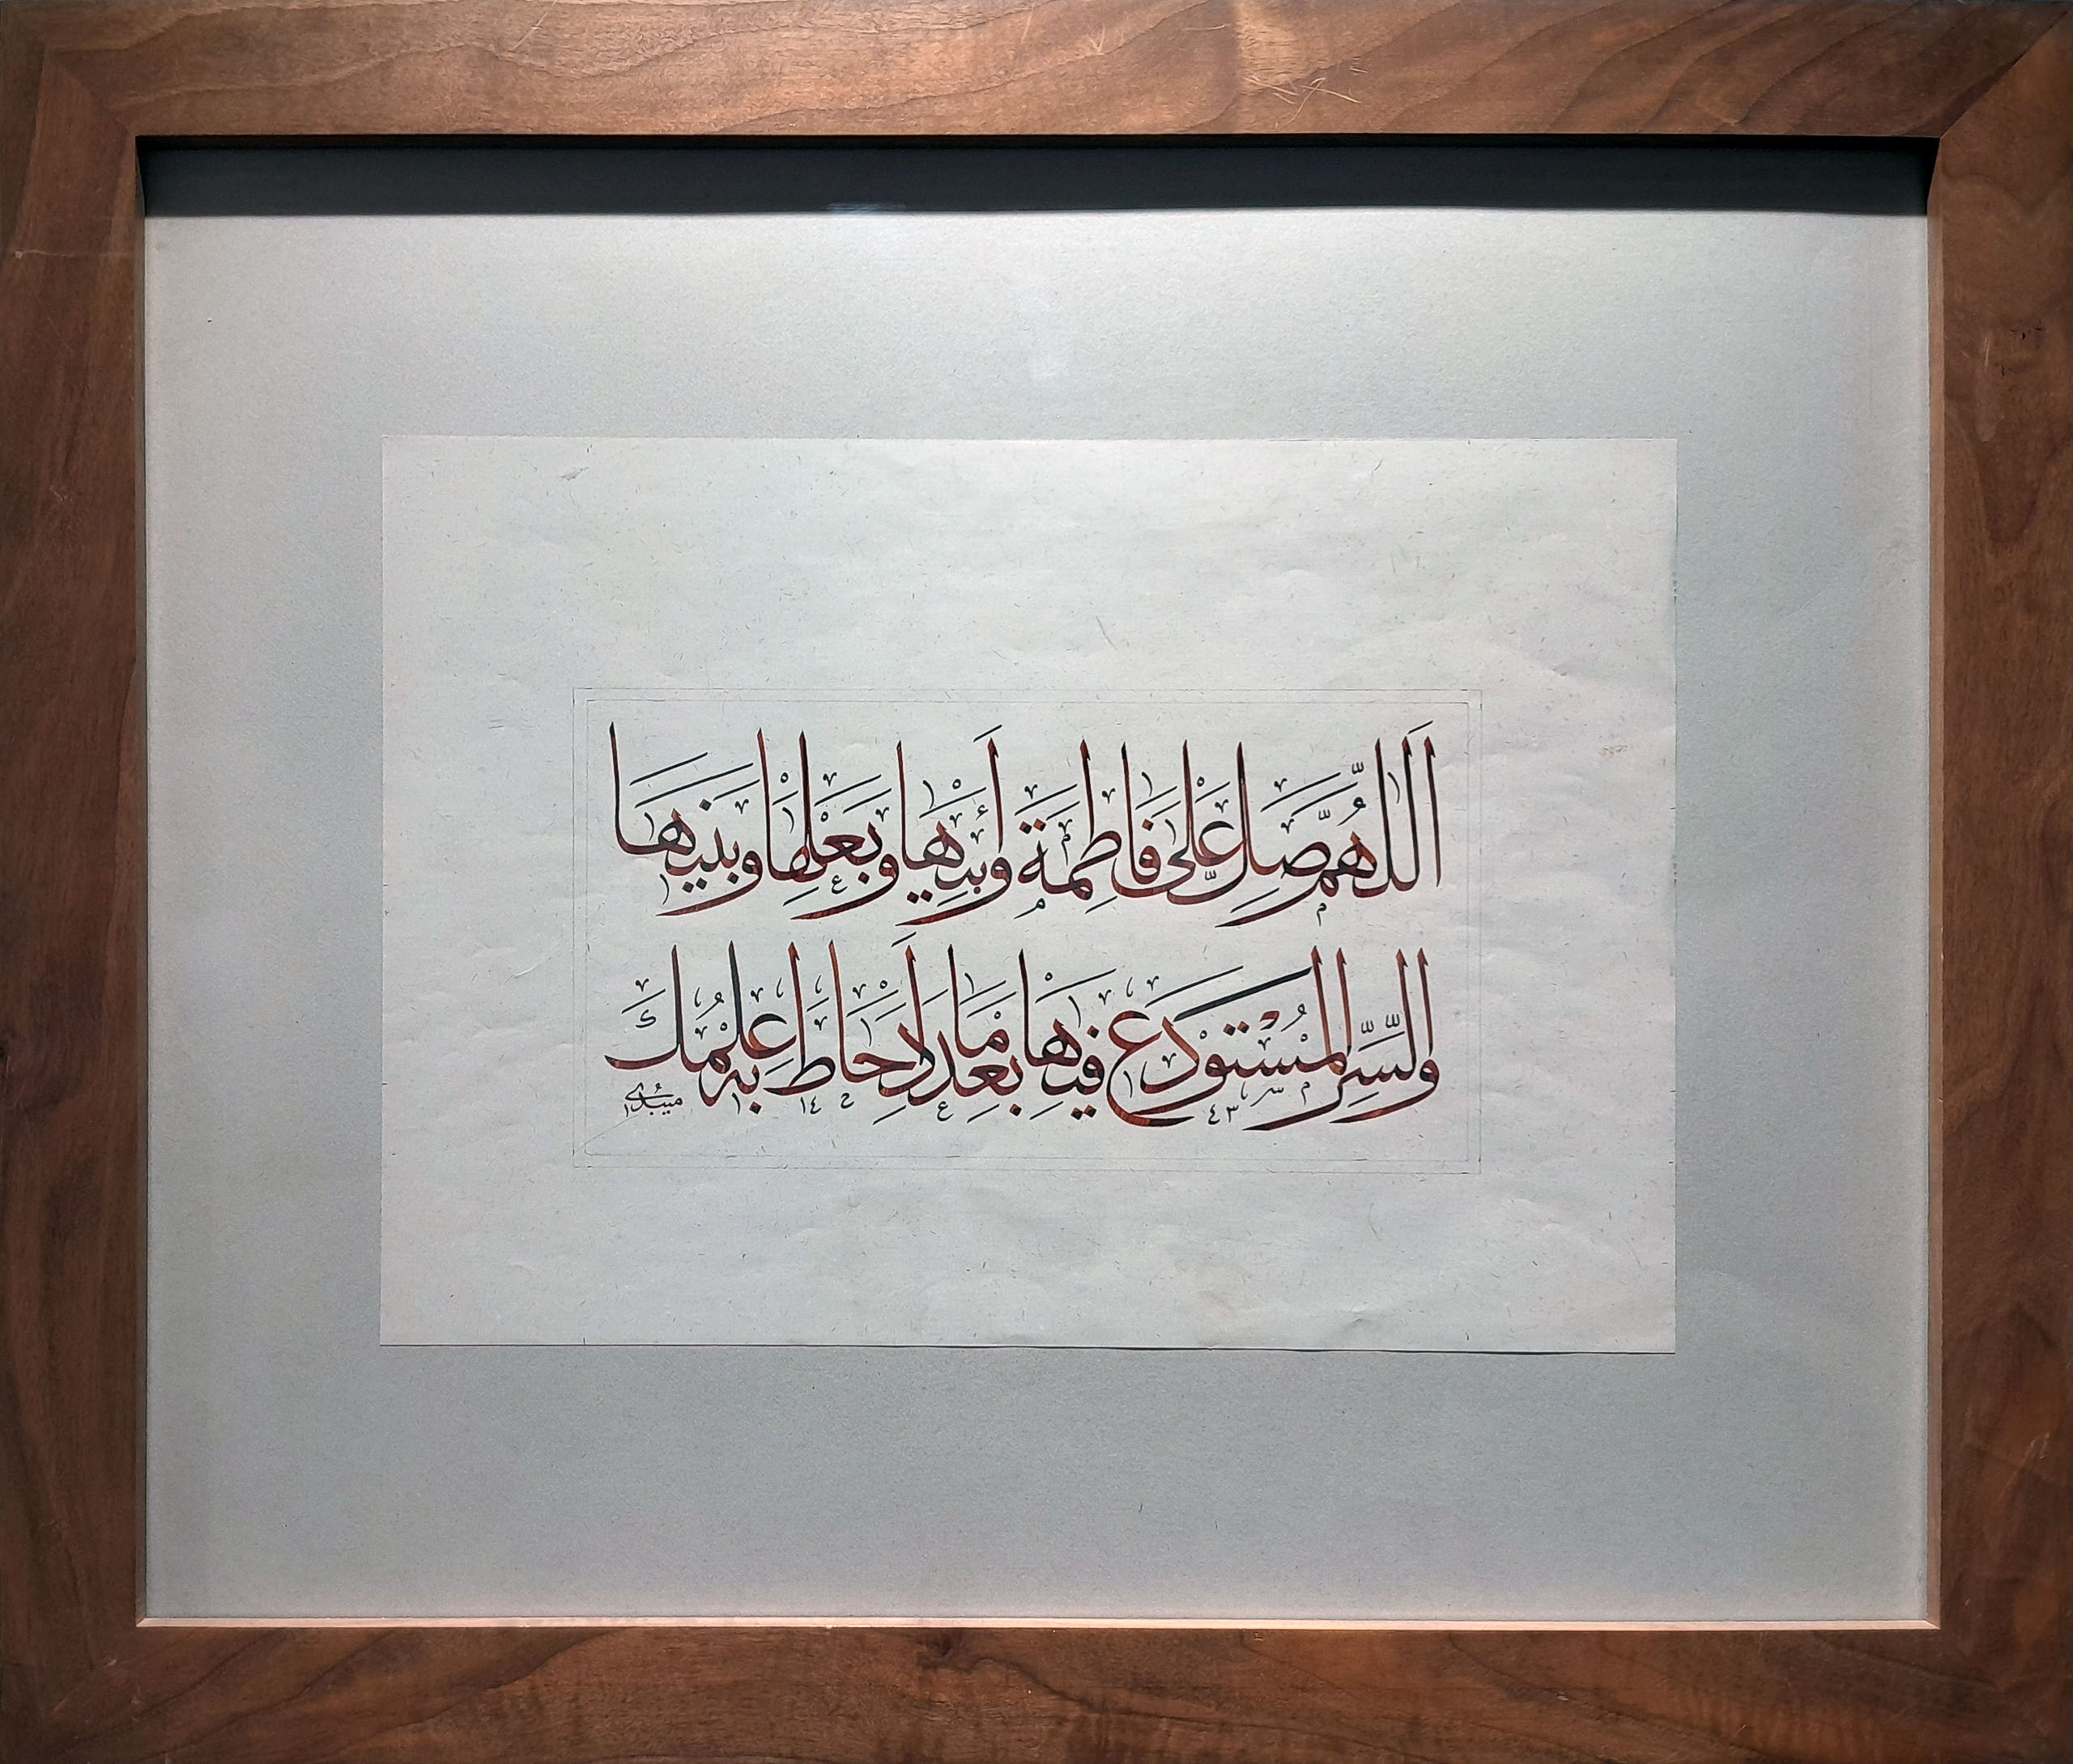 اَللّهُمَّ صَلِّ عَلى فاطِمَةَ وَأَبيها وَبَعْلِها وَبَنيها
وَالسِّرِّ الْمُسْتَوْدَعِ فيها بِعَدَدِ ما أَحاطَ بِهِ عِلْمُكَ
میبدی